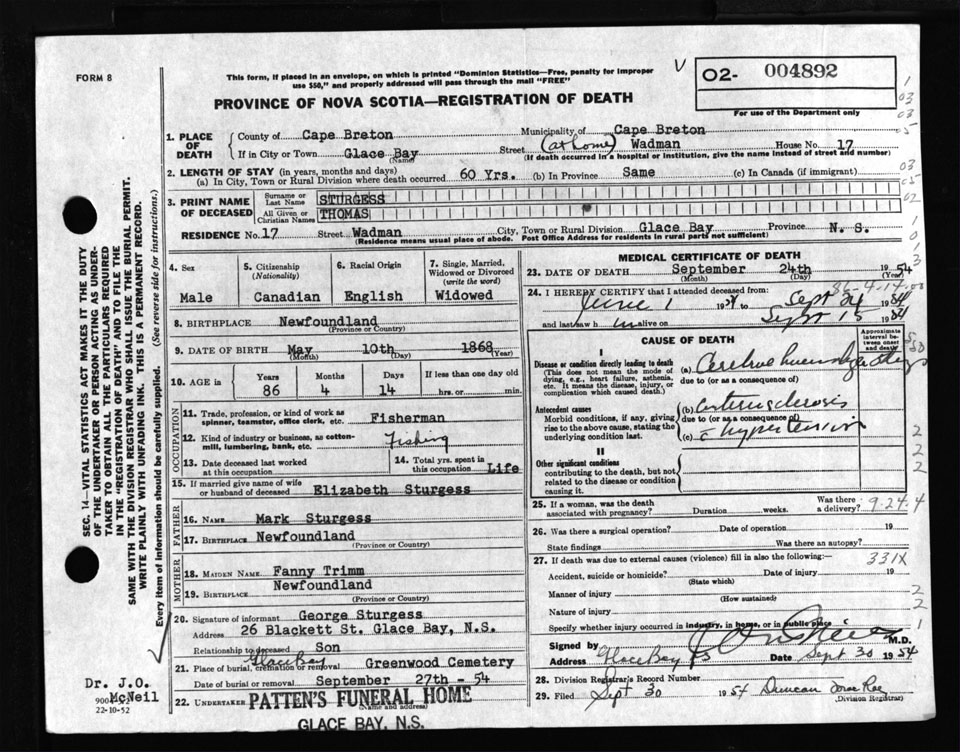 FORM 8
This form, if placed in an envelope, on which is printed "Dominion Statistics—Free, penalty for improper
use $50," and properly addressed will pass through the mail "FREE"
02- 004892
For use of the Department only
PROVINCE OF NOVA SCOTIA—REGISTRATION OF DEATH
1. PLACE OF DEATH
County of Cape Breton Municipality of Cape Breton
If in City or Town Glace Bay (Name) Street (at home) Wadman House No. 17
(If death occurred in a hospital or institution, give the name instead of street and number)
2. LENGTH OF STAY (in years, months and days)
(a) In City, Town or Rural Division where death occurred 60 Yrs. (b) In Province Same (c) In Canada (if immigrant)
3. PRINT NAME OF DECEASED
Surname or Last Name STURGESS
All Given or Christian Names THOMAS
RESIDENCE No. 17 Street Wadman City, Town or Rural Division Glace Bay Province N. S.
(Residence means usual place of abode. Post Office Address for residents in rural parts not sufficient)
4. Sex Male
5. Citizenship (Nationality) Canadian
6. Racial Origin English
7. Single, Married, Widowed or Divorced (write the word) Widowed
8. BIRTHPLACE Newfoundland
(Province or Country)
9. DATE OF BIRTH May 10th 1868
(Month) (Day) (Year)
10. AGE in Years Months Days If less than one day old
86 4 14 hrs. or min.
OCCUPATION
11. Trade, profession, or kind of work as
spinner, teamster, office clerk, etc. Fisherman
12. Kind of industry or business, as cotton-
mill, lumbering, bank, etc. Fishing
13. Date deceased last worked
at this occupation
14. Total yrs. spent in
this occupation Life
15. If married give name of wife
or husband of deceased Elizabeth Sturgess
FATHER
16. NAME Mark Sturgess
17. BIRTHPLACE Newfoundland
(Province or Country)
MOTHER
18. MAIDEN NAME Fanny Trimm
19. BIRTHPLACE Newfoundland
(Province or Country)
20. Signature of informant George Sturgess
Address 26 Blackett St. Glace Bay, N.S.
Relationship to deceased Son
21. Place of burial, cremation or removal Glace Bay Greenwood Cemetery
Date of burial or removal September 27th - 54
22. UNDERTAKER PATTEN'S FUNERAL HOME
(Name and address)
GLACE BAY, N.S.
MEDICAL CERTIFICATE OF DEATH
23. DATE OF DEATH September 24th 1954
(Month) (Day)
86-4-14
24. I HEREBY CERTIFY that I attended deceased from:
June 1 19 Sept 24 1954
and last saw h im alive on Sept 15 1954
CAUSE OF DEATH
Approximate interval between onset and death
I
Disease or condition directly leading to death
(This does not mean the mode of
dying, e.g., heart failure, asthenia,
etc. It means the disease, injury, or
complication which caused death.)
(a) Cerebral
due to (or as consequence of)
Antecedent causes
Morbid conditions, if any, giving
rise to the above cause, stating the
underlying condition last.
(b) arteriosclerosis
due to (or as a consequence of)
(c) c hypertension
II
Other significant conditions
contributing to the death, but not
related to the disease or condition
causing it.
25. If a woman, was the death
associated with pregnancy? Duration weeks. Was there a delivery?
9-24-4
26. Was there a surgical operation? Date of operation 19
State findings Was there an autopsy?
27. If death was due to external causes (violence) fill in also the following:—
331X
Accident, suicide or homicide? Date of injury 19
(State which)
Manner of injury
(How sustained)
Nature of injury
Specify whether injury occurred in industry, in home, or in public place
Signed by M.D.
Address Glace Bay Date Sept 30 1954
28. Division Registrar's Record Number
29. Filed Sept 30 1954 Duncan
(Division Registrar)
SEC. 14—VITAL STATISTICS ACT MAKES IT THE DUTY
OF THE UNDERTAKER OR PERSON ACTING AS UNDER-
TAKER TO OBTAIN ALL THE PARTICULARS REQUIRED
IN THE "REGISTRATION OF DEATH" AND TO FILE THE
SAME WITH THE DIVISION REGISTRAR WHO SHALL ISSUE THE BURIAL PERMIT.
WRITE PLAINLY WITH UNFADING INK. THIS IS A PERMANENT RECORD.
Every item of information should be carefully supplied. (See reverse side for instructions.)
Dr. J.O.
McNeil
22-10-52